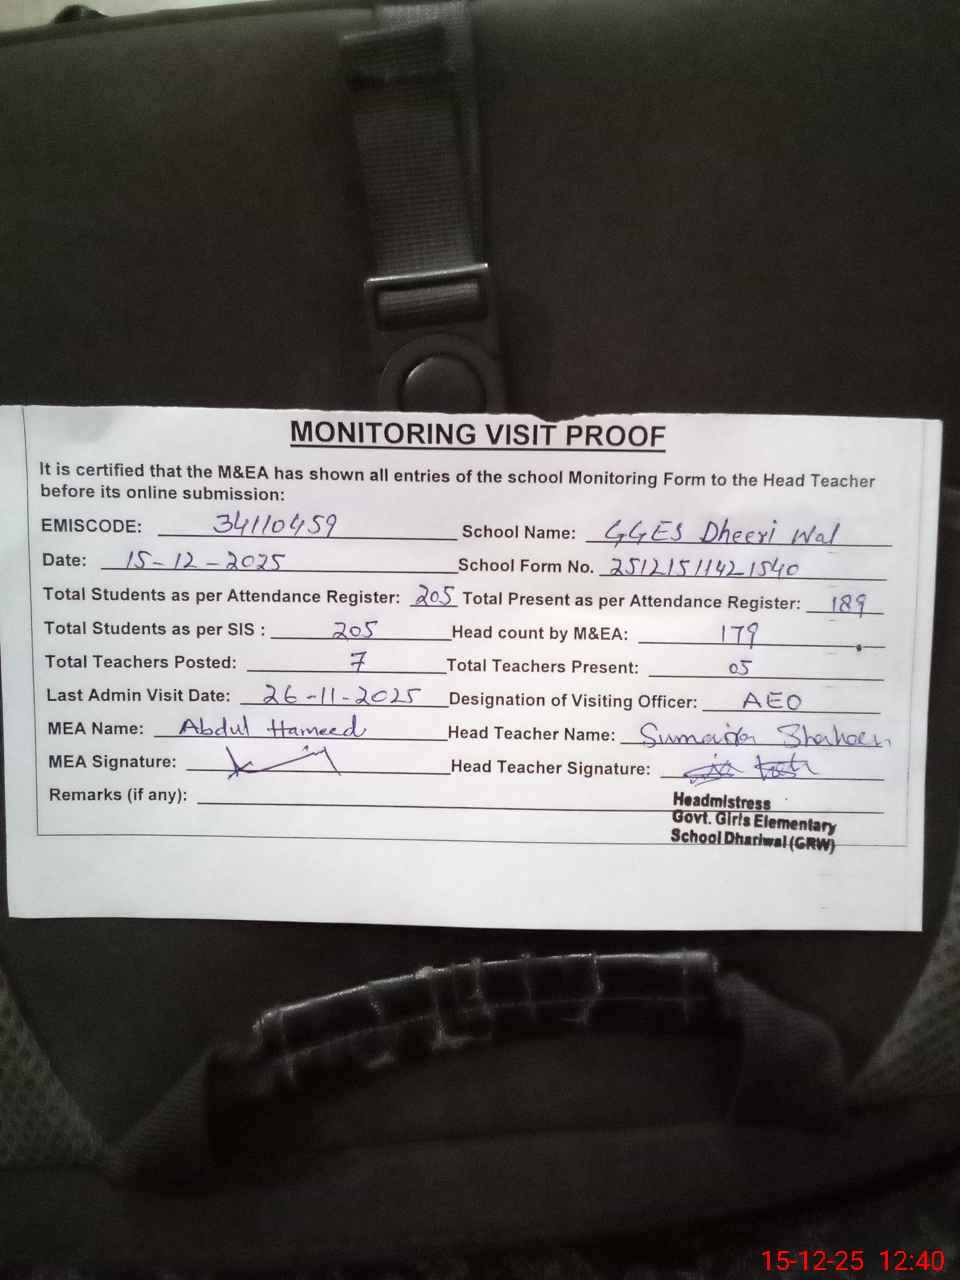 MONITORING VISIT PROOF
It is certified that the M&EA has shown all entries of the school Monitoring Form to the Head Teacher
before its online submission:
EMISCODE: 34110459 School Name: GGES Dheeri Wal
Date: 15-12-2025 School Form No. 25121511421540
Total Students as per Attendance Register: 205 Total Present as per Attendance Register: 189
Total Students as per SIS : 205 Head count by M&EA: 179
Total Teachers Posted: 7 Total Teachers Present: 05
Last Admin Visit Date: 26-11-2025 Designation of Visiting Officer: AEO
MEA Name: Abdul Hameed Head Teacher Name: Sumaira Shaheen
MEA Signature: Head Teacher Signature:
Remarks (if any):
Headmistress
Govt. Girls Elementary
School Dhariwal (GRW)
15-12-25 12:40